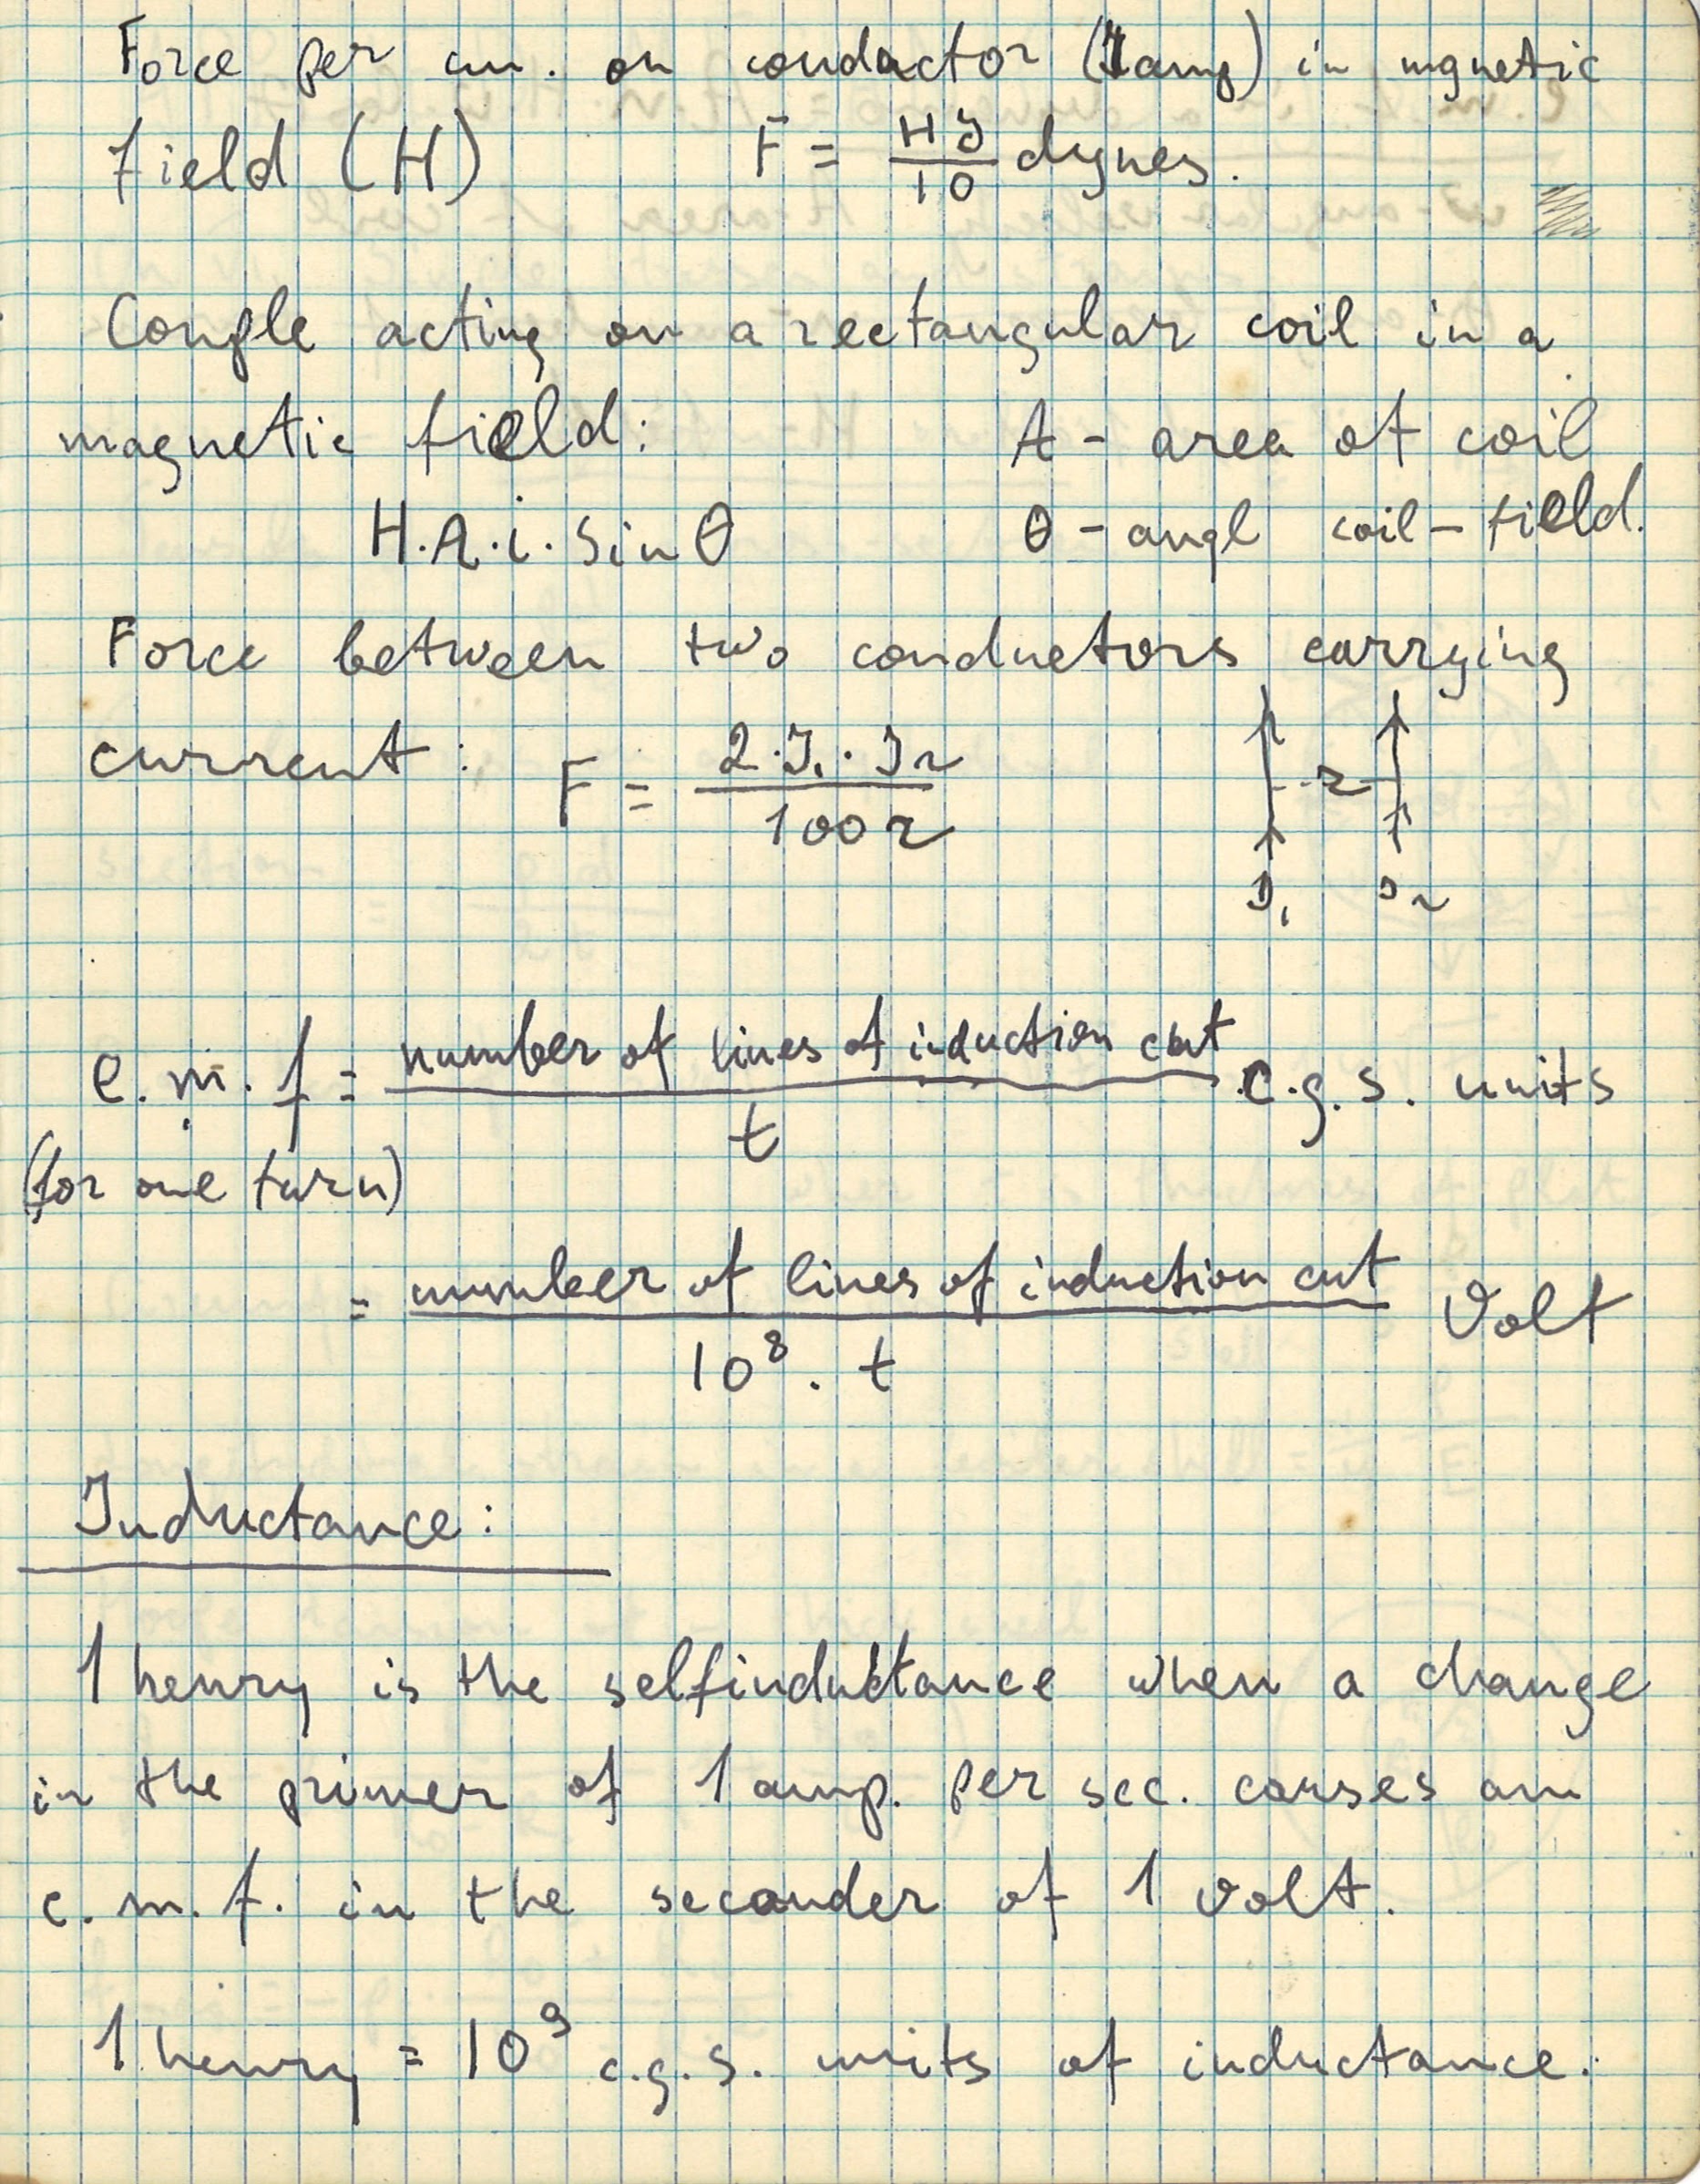 Force per cm. on conductor (I amp) in mgnetic
field (H) F = HI/10 dynes.
Couple acting on a rectangular coil in a
magnetic field: A - area of coil
H.A.i. sin θ θ - angl coil - field.
Force between two conductors carrying
current: F = 2·I₁·I₂/100r
r
I₁ I₂
e.m.f = number of lines of induction cut/t c.g.s. units
(for one turn)
= number of lines of induction cut/10⁸ . t Volt
Inductance:
1 henry is the selfinductance when a change
in the primer of 1 amp. per sec. causes an
e.m.f. in the secander of 1 volt.
1 henry = 10⁹ c.g.s. units of inductance.